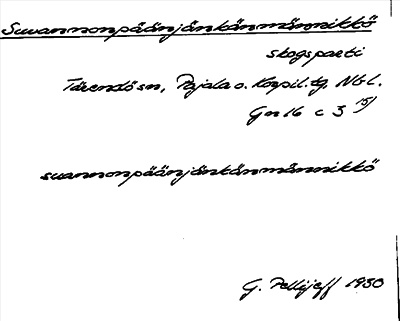 Suvannonpäänjänkänmännikkö
skogsparti
Tärendö sn, Pajala o. Korpil. tg. Nbl.
Gn 16 c 3 15/
suannonpäänjänkänmännikkö
G. Pellijeff 1980